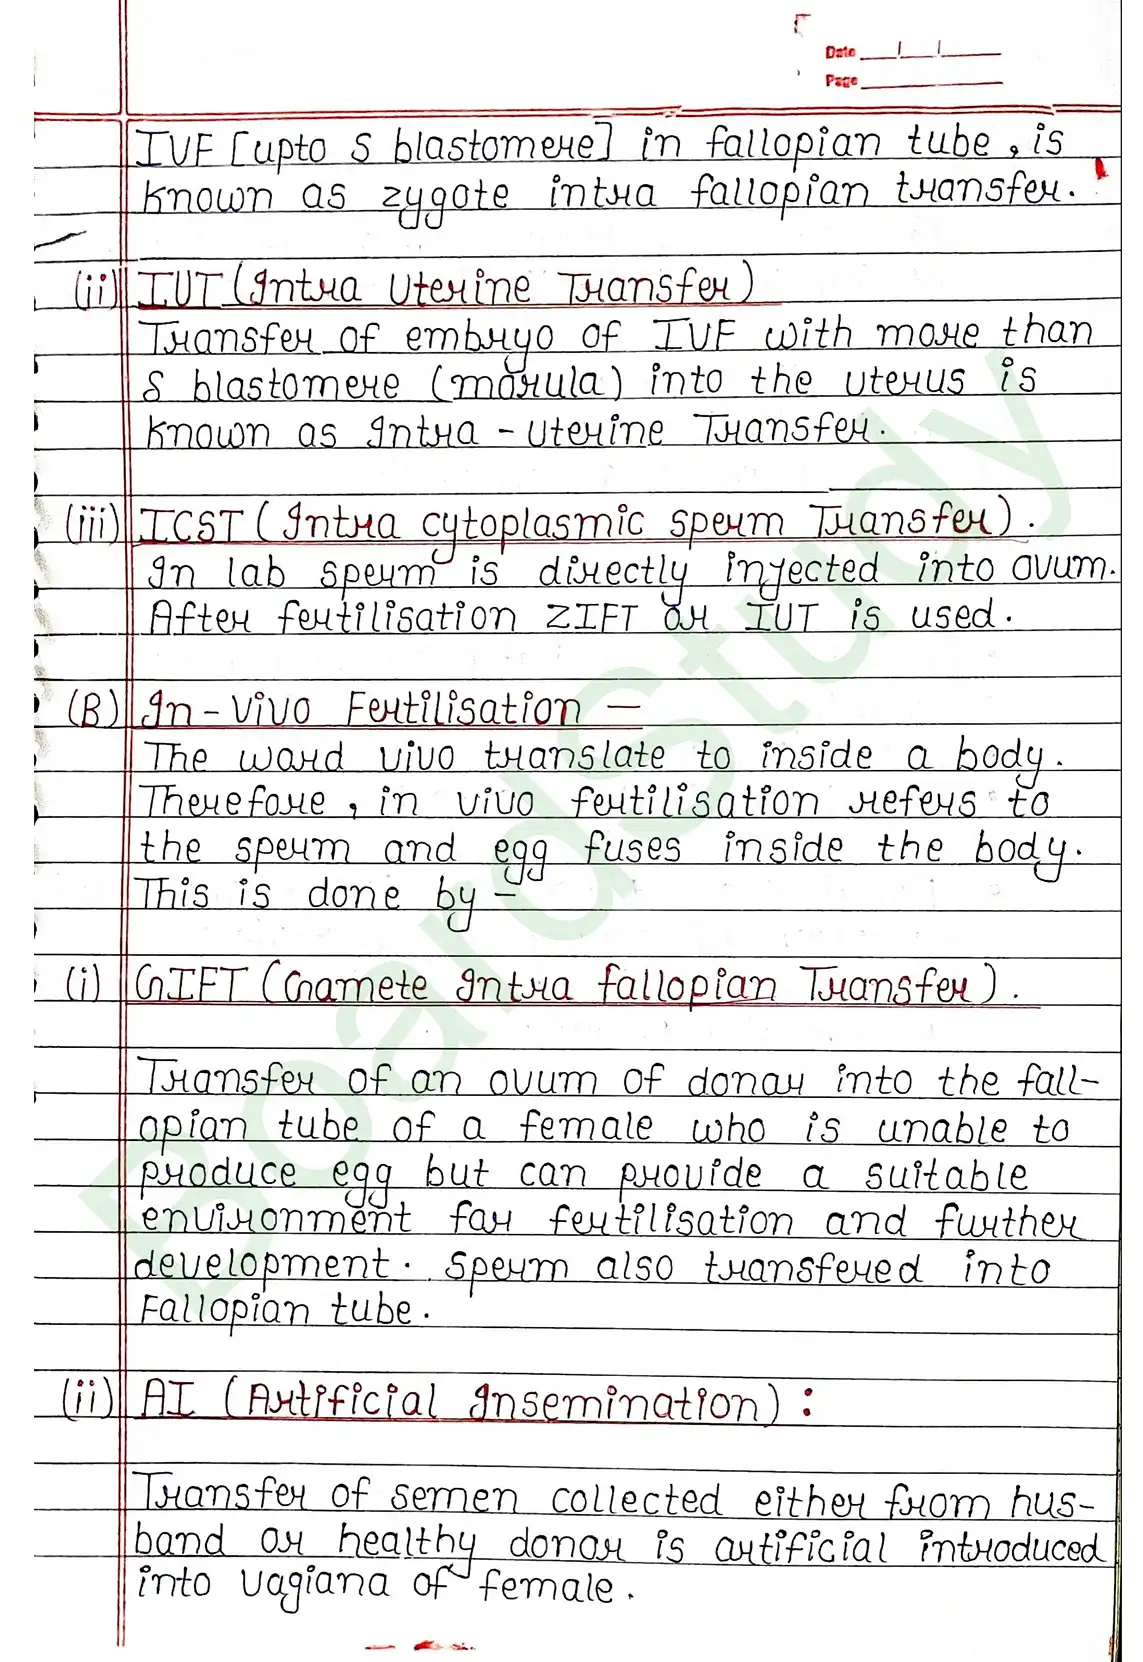 Date
Page
IVF [upto 8 blastomere] in fallopian tube, is
known as zygote intra fallopian transfer.
(ii) IUT (Intra Uterine Transfer)
Transfer of embryo of IVF with more than
8 blastomere (morula) into the uterus is
known as Intra-uterine Transfer.
(iii) ICST (Intra cytoplasmic sperm Transfer).
In lab sperm is directly injected into ovum.
After fertilisation ZIFT or IUT is used.
(B) In-Vivo Fertilisation —
The word vivo translate to inside a body.
Therefore, in vivo fertilisation refers to
the sperm and egg fuses inside the body.
This is done by -
(i) GIFT (Gamete Intra fallopian Transfer).
Transfer of an ovum of donor into the fall-
opian tube of a female who is unable to
produce egg but can provide a suitable
environment for fertilisation and further
development. Sperm also transfered into
Fallopian tube.
(ii) AI (Artificial Insemination):
Transfer of semen collected either from hus-
band or healthy donor is artificial introduced
into vagiana of female.
BoardStudy